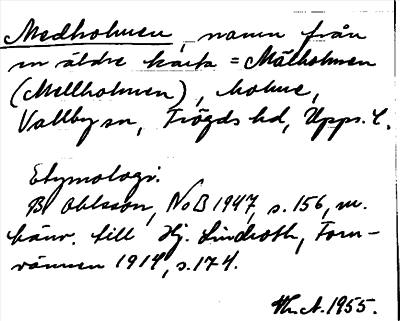 Medholmen, namn från
en äldre karta = Mälholmen
(Mellholmen), holme,
Vallby sn, Trögds hd, Upps. l.
Etymologi.
B. Ohlsson, NoB 1947, s. 156, m.
hänv. till Hj. Lindroth, Forn-
vännen 1914, s. 174.
1955.